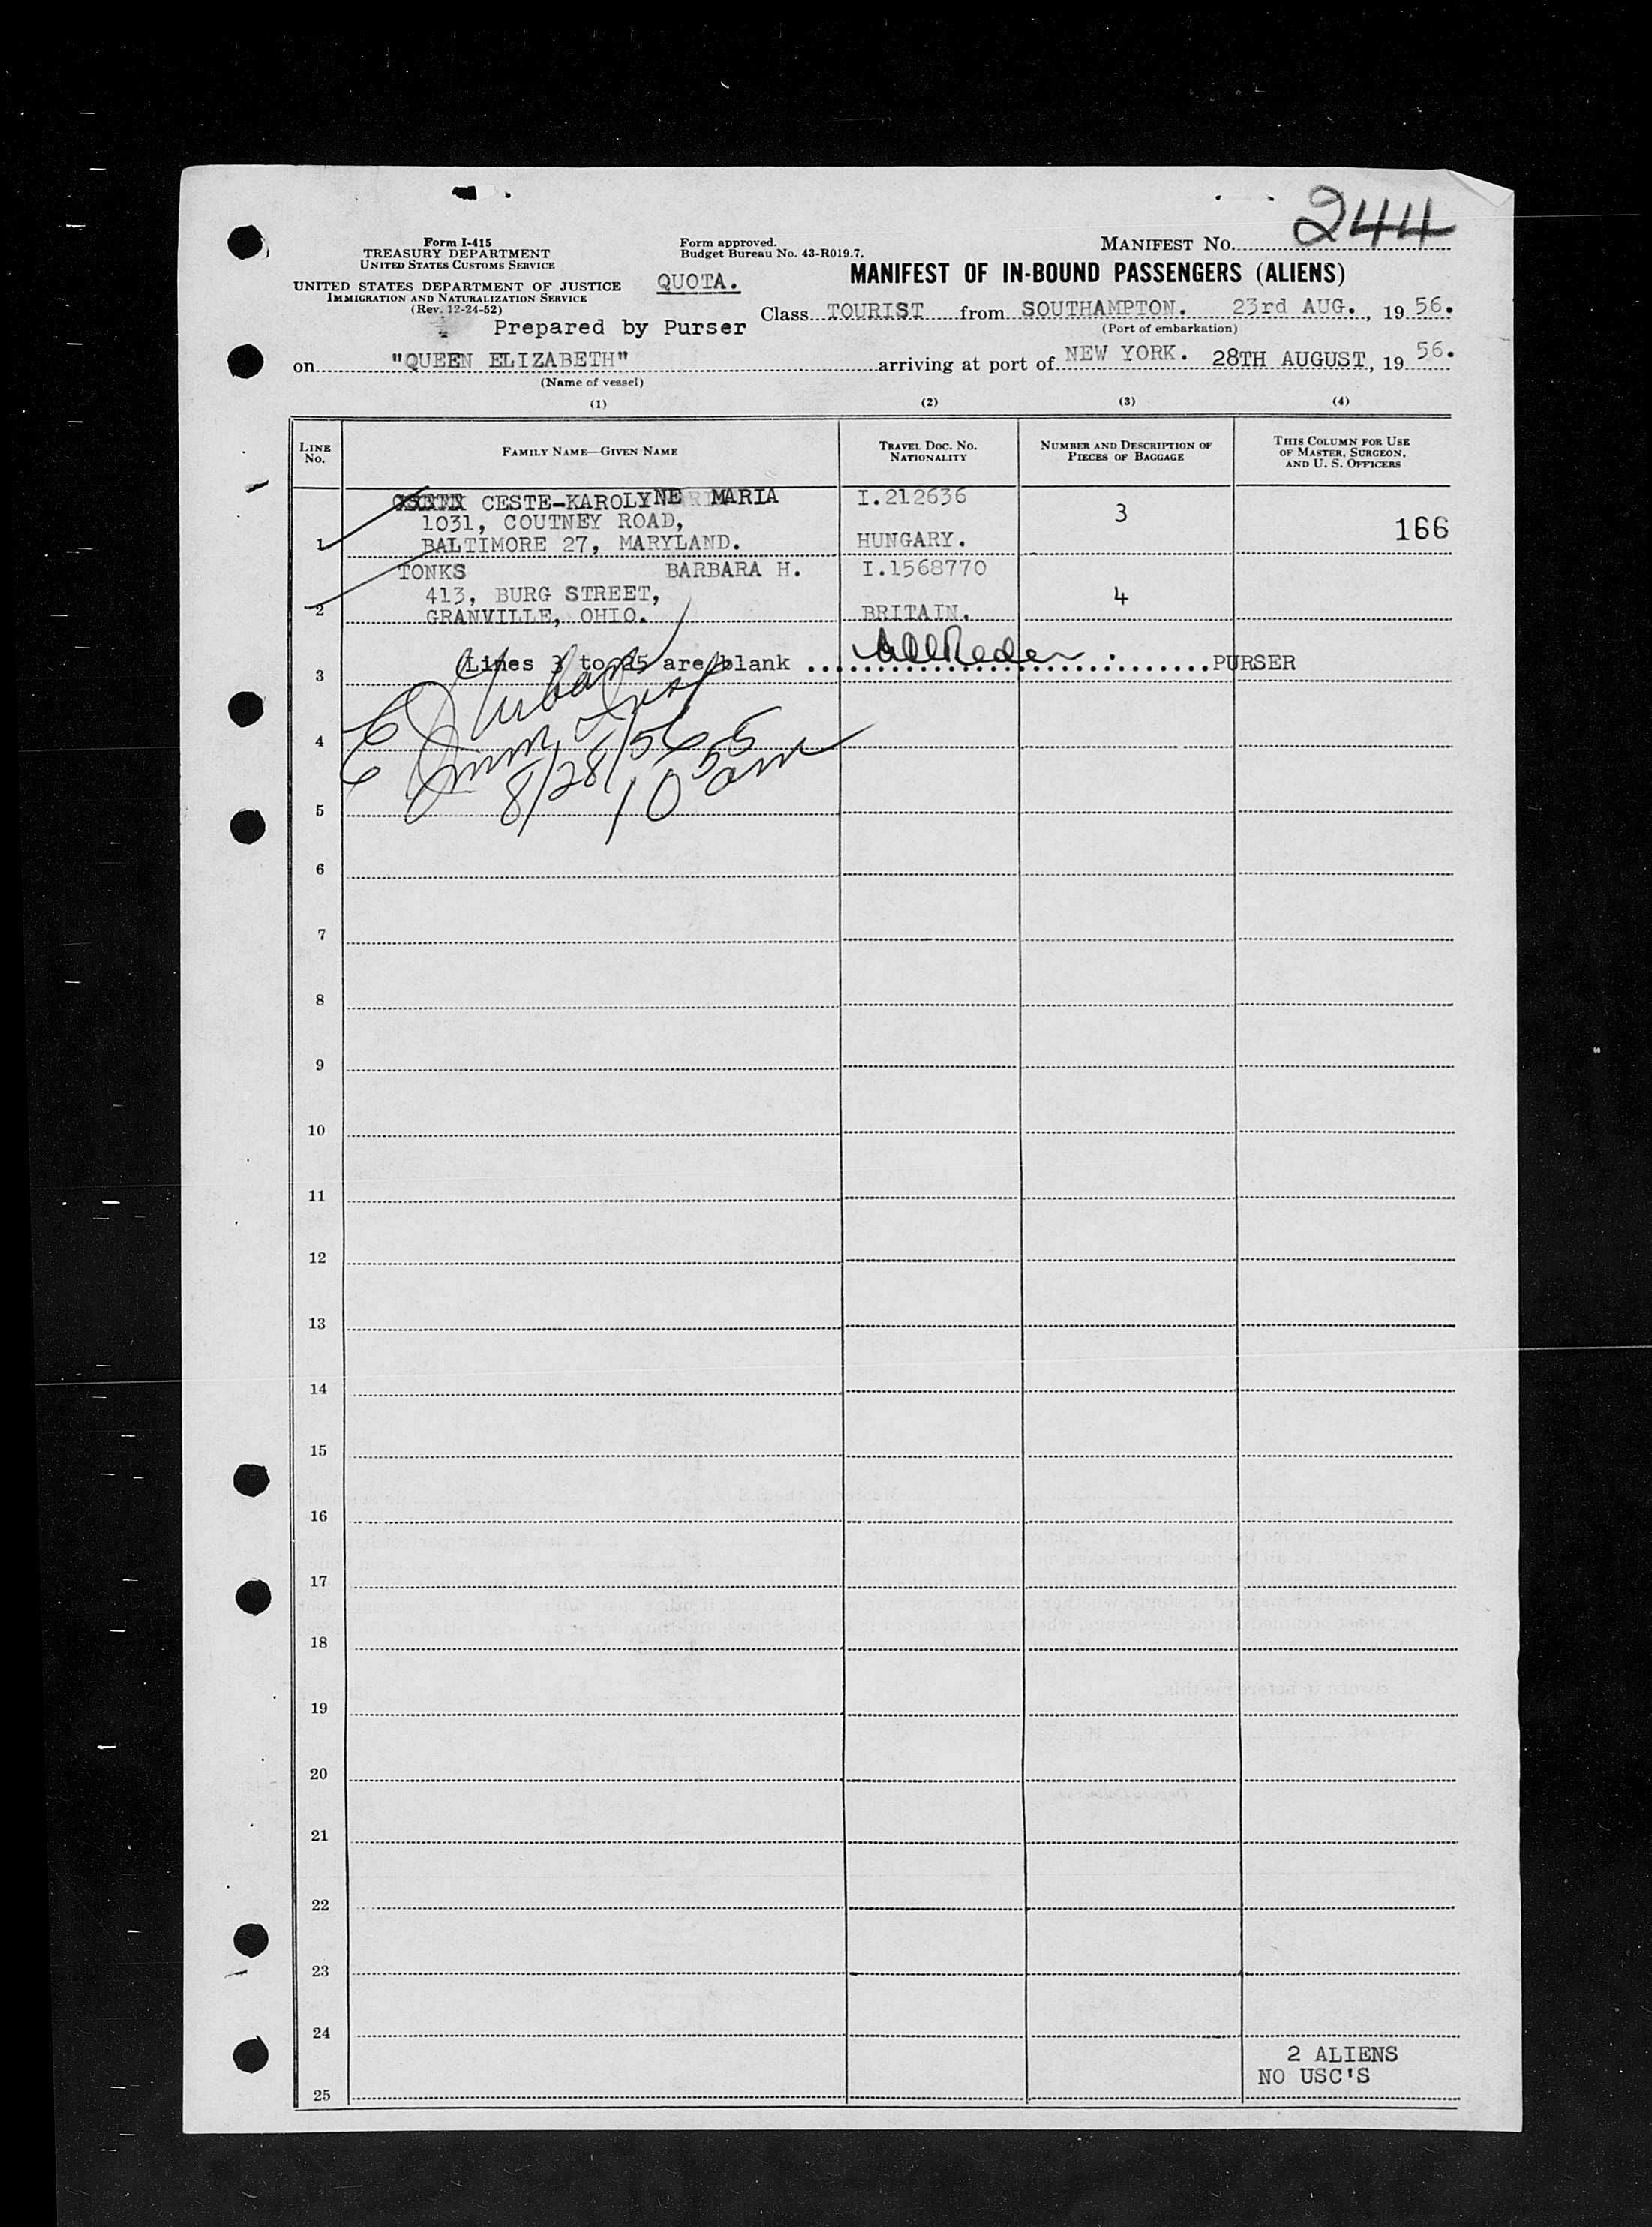 244
Form I-415
TREASURY DEPARTMENT
UNITED STATES CUSTOMS SERVICE
UNITED STATES DEPARTMENT OF JUSTICE
IMMIGRATION AND NATURALIZATION SERVICE
(Rev. 12-24-52)
Form approved.
Budget Bureau No. 43-R019.7.
MANIFEST No.
QUOTA.
MANIFEST OF IN-BOUND PASSENGERS (ALIENS)
Prepared by Purser
Class TOURIST from SOUTHAMPTON. 23rd AUG., 1956.
(Port of embarkation)
on "QUEEN ELIZABETH" arriving at port of NEW YORK. 28TH AUGUST, 1956.
(Name of vessel)
(1) (2) (3) (4)
LINE No.
FAMILY NAME—GIVEN NAME
TRAVEL DOC. No. NATIONALITY
NUMBER AND DESCRIPTION OF PIECES OF BAGGAGE
THIS COLUMN FOR USE OF MASTER, SURGEON, AND U. S. OFFICERS
CESTE-KAROLYNE MARIA I.212636
1031, COUTNEY ROAD, 3
1 BALTIMORE 27, MARYLAND. HUNGARY. 166
TONKS BARBARA H. I.1568770
413, BURG STREET, 4
2 GRANVILLE, OHIO. BRITAIN.
3 Lines 3 to 25 are blank PURSER
8/28/56
10 55 am
4
5
6
7
8
9
10
11
12
13
14
15
16
17
18
19
20
21
22
23
24
2 ALIENS
NO USC'S
25